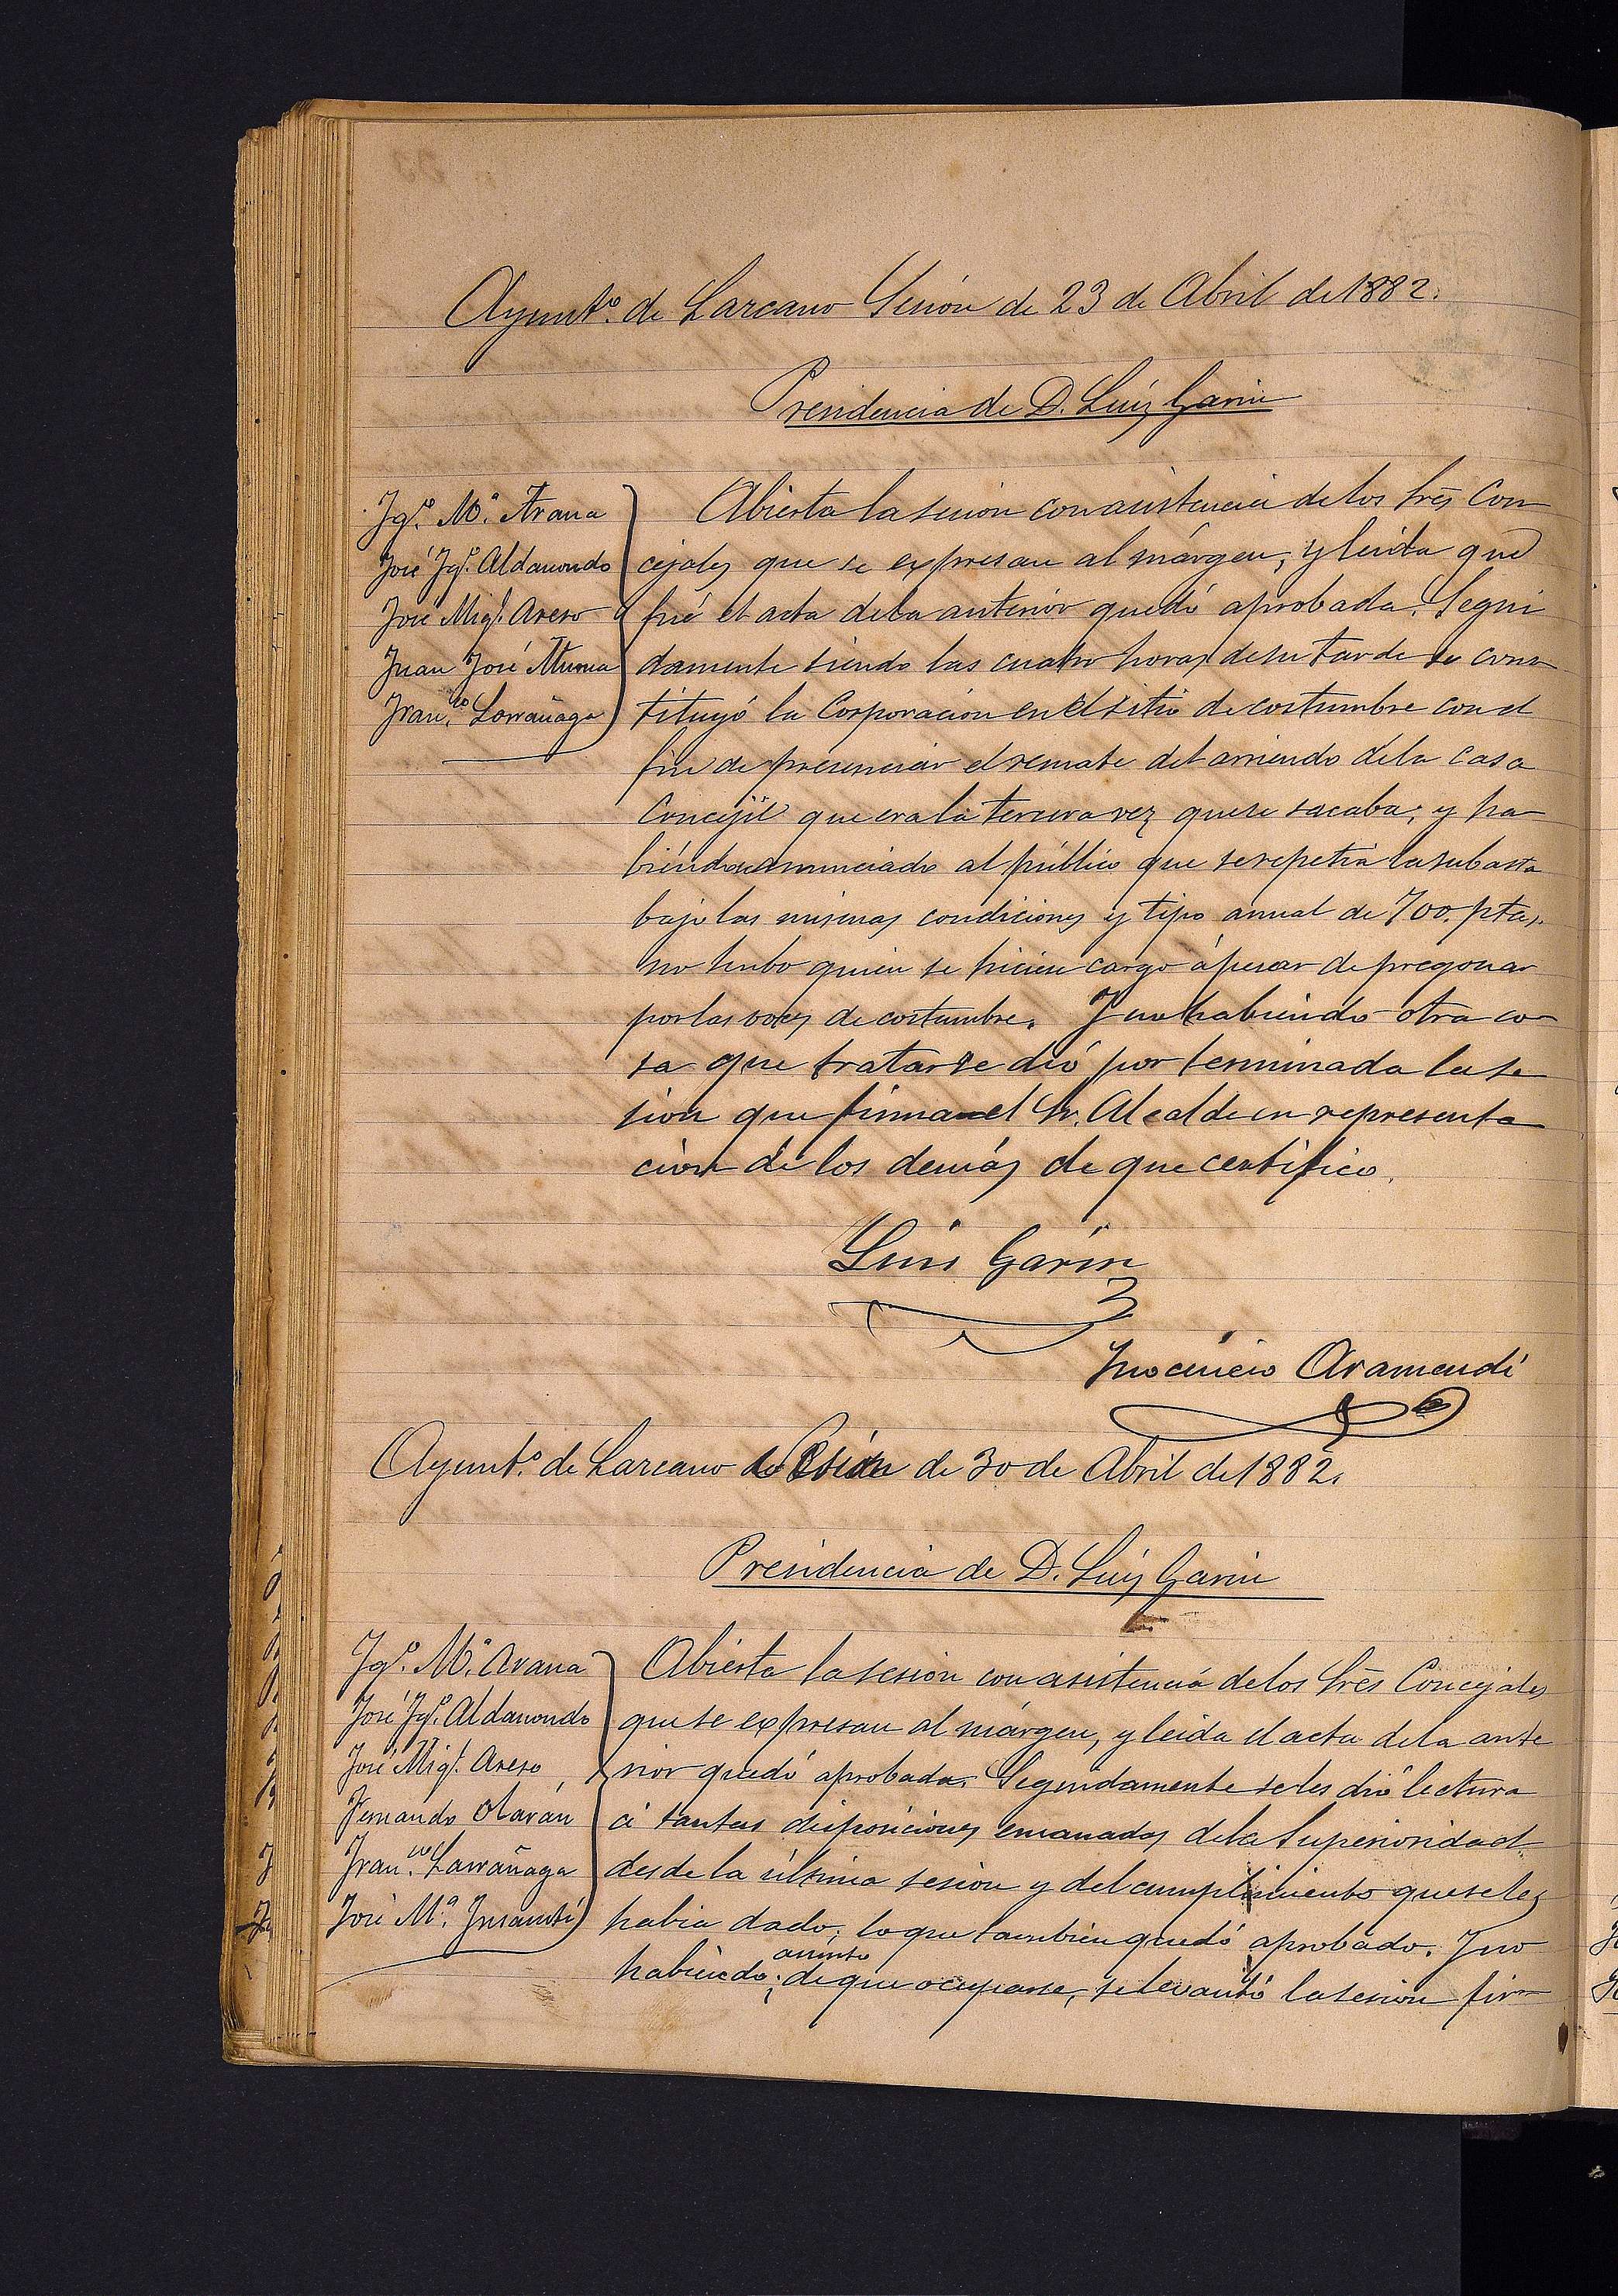 Ayuntº. de Lazcano Sesión de 23 de Abril de 1882.
Presidencia de D. Luis Garin
Igº. Mª. Arana
José Igº. Aldanondo
José Migl. Areso
Juan José Muxua
Franco. Larrañaga
Abierta la sesión con asistencia de los Srēs Con
cejales que se expresan al márgen, y leida que
fué el acta de la anterior quedó aprobada. Segui
damente siendo las cuatro horas de su tarde se cons
tituyó la Corporación en el sitio de costumbre con el
fin de presenciar el remate del arriendo de la casa
Concejil que era la tercera vez que se sacaba; y ha
biéndose anunciado al público que se repetía la subasta
bajo las mismas condiciones y tipo anual de 700. ptas.
no hubo quien se hiciese cargo ápesar de pregonar
por las voces de costumbre. Y no habiendo otra co
sa que tratar se dió por terminada la se
sion que firma el Sr. Alcalde en representa
ción de los demás de que certifico.
Luis Garin
Inocencio Aramendi
Ayuntº. de Lazcano Sesión de 30 de Abril de 1882.
Presidencia de D. Luis Garin
Igº. Mª. Arana
José Igº. Aldanondo
José Migl. Areso
Fernando Olaran
Franco. Larrañaga
José Mª. Insausti
Abierta la sesión con asistencia de los Srēs Concejales
que se expresan al márgen, y leida el acta de la ante
rior quedó aprobada. Seguidamente se les dió lectura
á tantas disposiciones emanadas de la Superioridad
desde la última sesión y del cumplimiento que se les
habia dado, lo que tambien quedó aprobado. Y no
asunto
habiendo de que ocuparse, se levantó la sesión fir